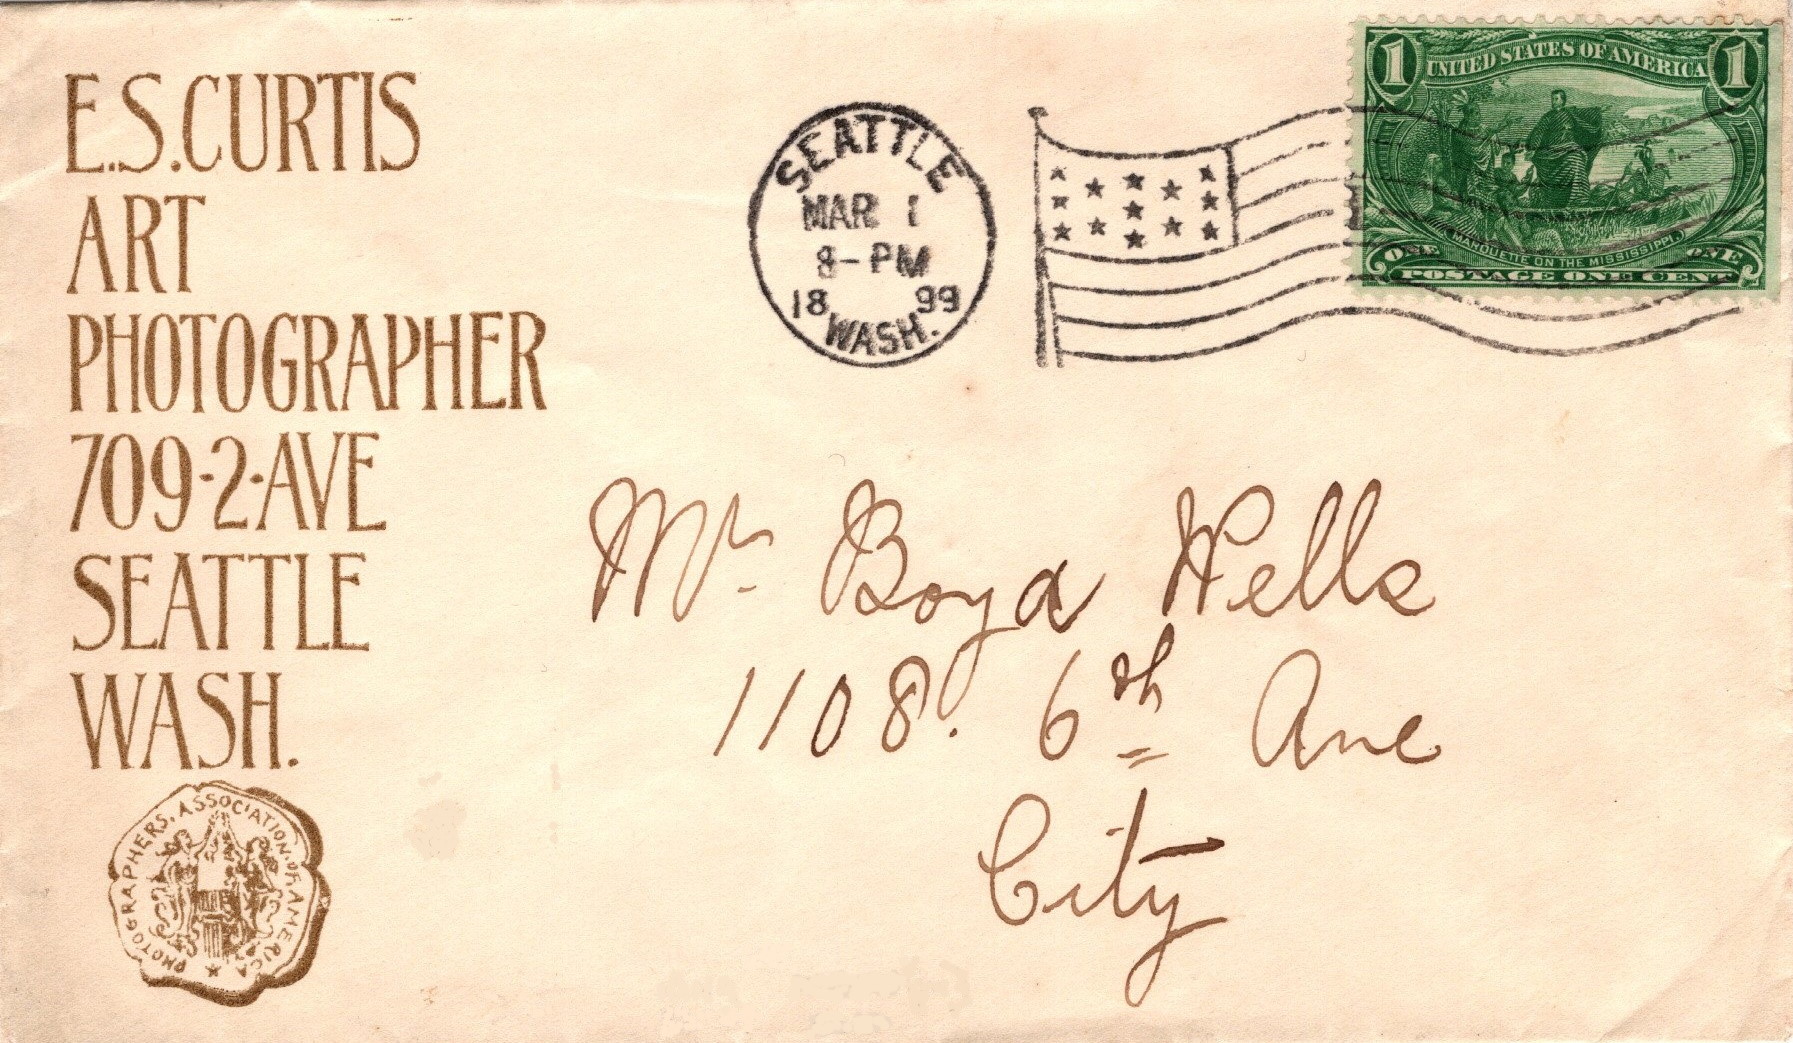 E.S. CURTIS
ART
PHOTOGRAPHER
709-2-AVE
SEATTLE
WASH.
PHOTOGRAPHERS, ASSOCIATION OF AMERICA
SEATTLE
MAR 1
8-PM
1899
WASH.
1 UNITED STATES OF AMERICA 1
MARQUETTE ON THE MISSISSIPPI
ONE ONE
POSTAGE ONE CENT
Mr. Boyd Wells
1108. 6th Ave
City